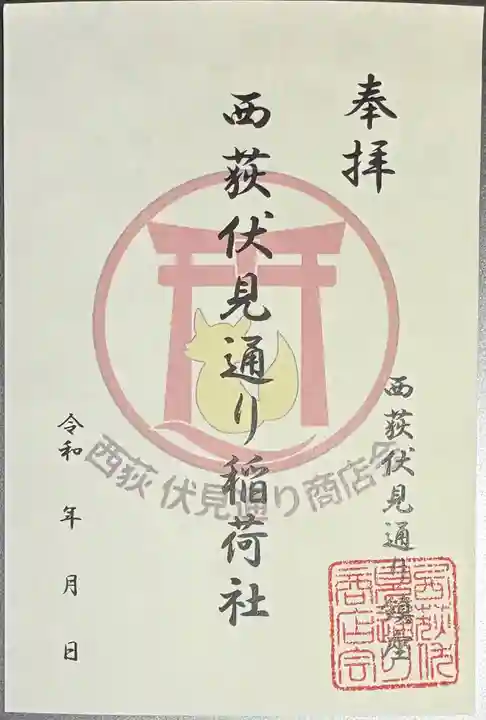 奉拝
西荻伏見通り稲荷社
西荻伏見通り鎮座
令和 年 月 日
西荻 伏見通り商店会
西荻伏
見通り
商店会